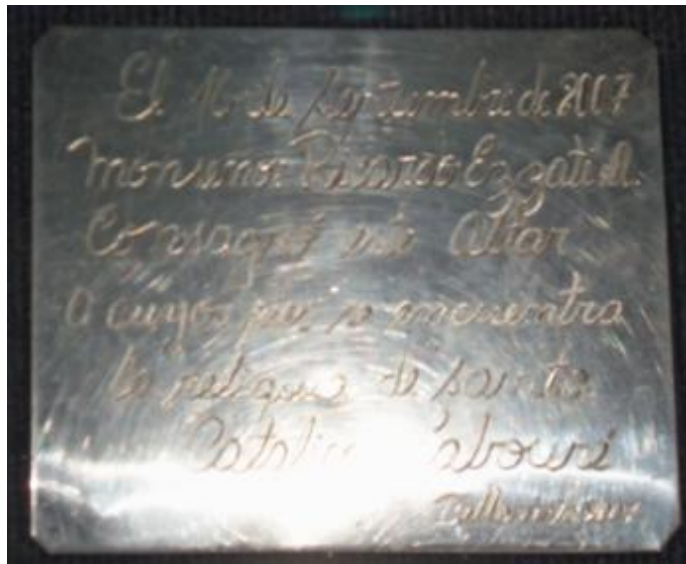 El 16 de Septiembre de 2007
Monseñor Ricardo Ezzati A.
Consagró este Altar
a cuyos pies se encuentra
la reliquia de Santa
Catalina Labouré